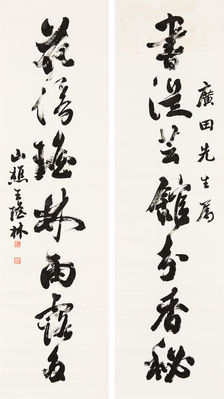 廣田先生属
書從芸館分香秘
花傍瑤林雨露多
山樵王林